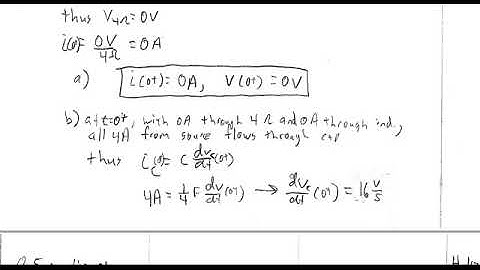 thus V4Ω=0V
i(0+)= 0V/4Ω = 0A
a) i(0+)=0A, V(0+)=0V
b) at t=0+, with 0A through 4Ω and 0A through ind.,
all 4A from source flows through cap
thus iC(0+)= C dVc/dt(0+)
4A = 1/4 F dV/dt(0+) → dVc/dt(0+) = 16 V/s